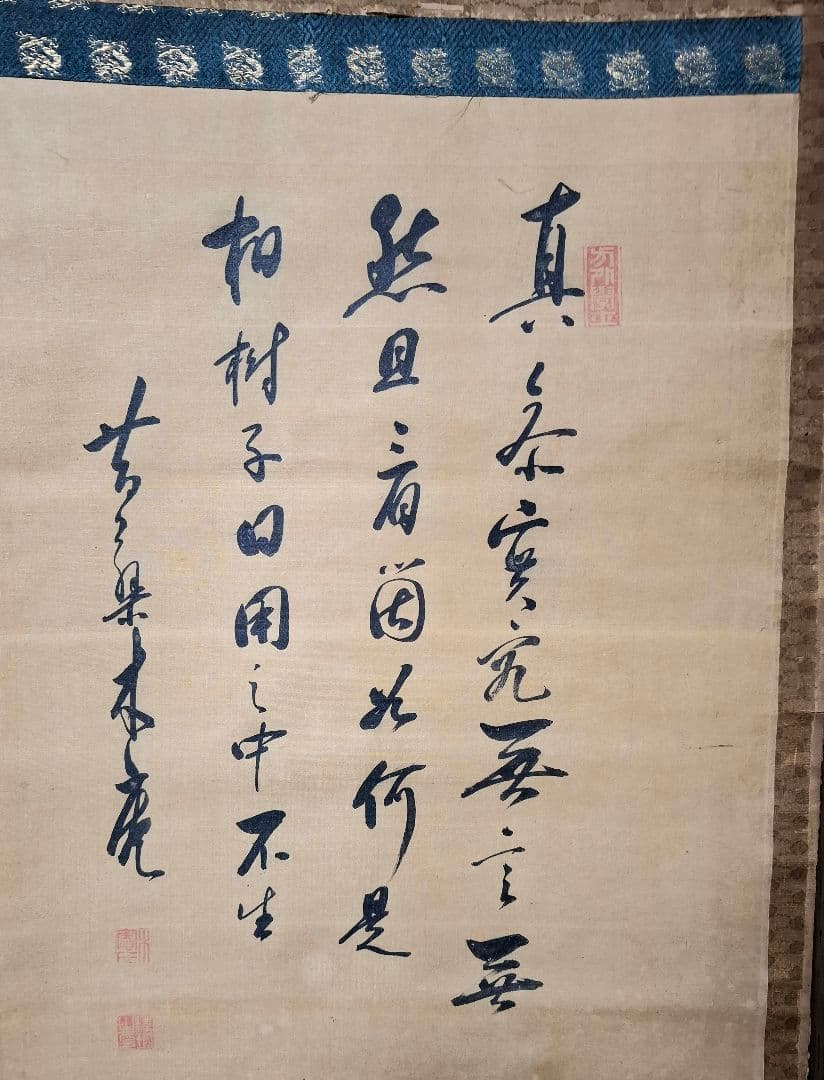 真参實究無言無
然且看箇如何是
柏樹子日用之中不生
黄檗木庵